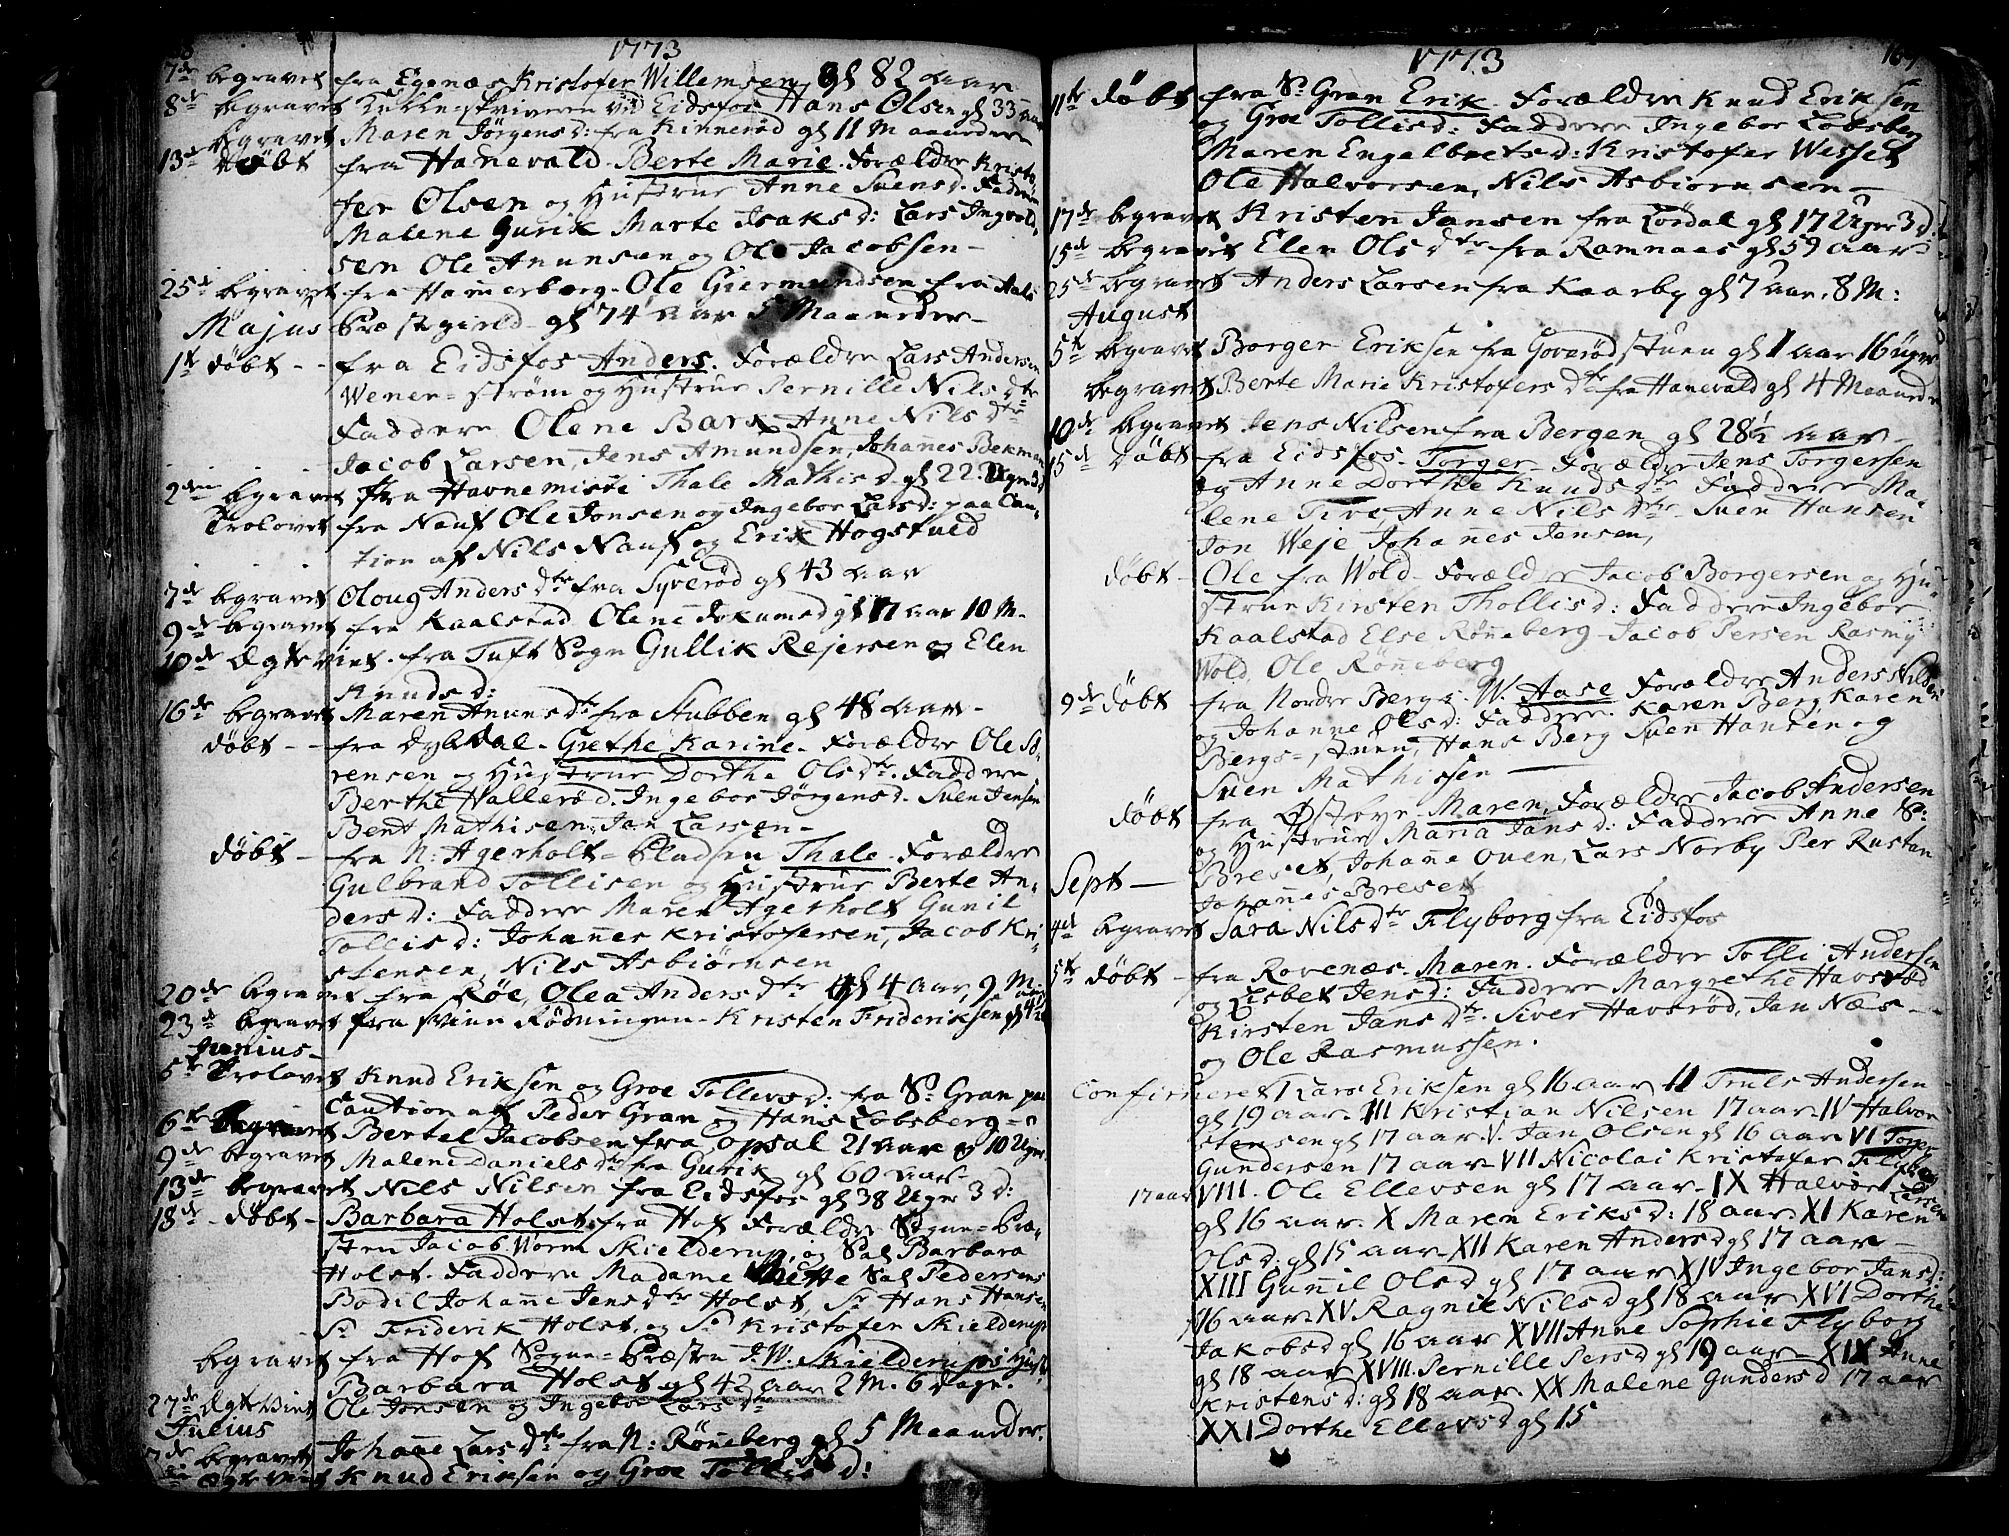 1773
7de begravet fra Egenæs Kristofer Willemsen, gl 82 aar
8de begravet Kulle-skriveren ved Eidsfos Hans Olsen gl 33 aar
begravet Maren Jörgensd: fra Kinnerød gl 11 Maaneder
13de døbt fra Hanevald Berte Marie. Forældre Kristo
fer Olsen og Hustrue Anne Suensd. Faddere
Malene Gurik Marte Isaksd: Lars Ingvold-
sen Ole Anunsen og Ole Jacobsen-
25de begravet fra Hamerberg- Ole Giermundsen fra Aals
Majus Præstegield gl 74 aar 5 Maaneder-
1te døbt - - fra Eidsfos Anders. Forældre Lars Andersen
Wener-strøm og Hustrue Pernille Nilsdtr
Faddere Olene Bark Anne Nilsdtr
Jacob Larsen, Jens Amundsen, Johañes Bekman
2den begravet fra Havnemiste Thale Mathisd. gl 22 Uger 3d
Trolovet fra Nauf Ole Jonsen og Ingebor Larsd: paa Cau-
tion af Nils Nauf og Erik Hogstveld
7de begravet Oloug Andersdtr fra Syverød gl 43 aar
9de begravet fra Kaalstad Olene gl 17 aar 10 M-
10de Egteviet. fra Tuft Sogn Gullik Rejersen og Elen
Knudsd:
16de begravet Maren Anunsdtr fra Stubben gl 48 aar-
døbt - - fra Dybdal- Grethe Karine- Forældre Ole Sö-
rensen og Hustrue Dorthe Olsdtr. Faddere
Berthe Hallerød. Ingebor Jørgensd. Suen Jensen
Bent Mathisen. Jan Larsen-
døbt - fra N: Agerholt-Pladsen Thale. Forældre
Gulbrand Tollisen og Hustrue Berte An-
dersd: Faddere Maren Agerholt Gunil
Tollisd: Johañes Kristofersen, Jacob Kri-
stensen, Nils Asbiørnsen
20de begravet fra Røe, Olea Andersdtr gl 4 Aar, 9 M-
23de begravet fra Rödningen- Kristen Frideriksen gl 42 aar
Junius-
5te Trolovet Knud Eriksen og Groe Tollevsd: fra Sr Gran paa
Caution af Peder Gran og Hans Lobsberg-
6te begravet Bertel Jacobsen fra Opsal 21 aar og 10 Uger
9de begravet Malene Danielsdtr fra Gurik gl 60 aar-
13de begravet Nils Nilsen fra Eidsfos gl 38 Uger 3 D:
18de - døbt - Barbara Holst. fra Hof Forældre Sogne-Præ-
sten Jacob Worm Skielderup, og Sal Barbara
Holst. Faddere Madame Mette Sal Pedersens
Bodil Johañe Jensdtr Holst, Sr Hans Hansen
Sr Friderik Holst og Sr Kristofer Skielderup
begravet fra Hof Sogne-Præsten J. W. Skielderups Hust:
Barbara Holst gl 42 aar 2 M. 6 Dage.
27de Egteviet Ole Jonsen og Ingebor Larsdtr
Julius
7de begravet Johañe Larsdtr fra N: Røñeberg gl 5 Maaneder.
Egteviet Knud Eriksen og Groe Tollisd:
1773
11te døbt fra Sr Gran Erik. Forældre Knud Eriksen
og Groe Tollisd: Faddere Ingebor Lobsberg
Maren Engelbretsd: Kristofer Wesset
Ole Halvorsen, Nils Asbiørnsen-
17de begravet Kristen Jansen fra Lördal gl 17 Uger 3 D.
15de begravet Elen Olsdtr fra Ramnaas gl 59 aar
25de begravet Anders Larsen fra Kaarby gl 7 aar, 8 M:
August
5te begravet Borger Eriksen fra Goverødstuen gl 1 aar 16 Uger
begravet Berte Marie Kristofersdtr fra Hanevald gl 4 Maaneder
10de begravet Jens Nilsen fra Bergen gl 28½ aar-
15de døbt fra Eidsfos- Torger- Forældre Jens Torgersen
og Anne Dorthe Knudsdtr Faddere Ma-
lene Tire, Anne Nilsdtr Suen Hansen
Jon Weje Johañes Jensen,
døbt - Ole fra Wold- Forældre Jacob Borgersen og Hu-
strue Kirsten Thollisd: Faddere Ingebor
Kaalstad Else Røñeberg- Jacob Persen Rasmus
Wold, Ole Rõneberg
9de døbt fra Nordre Berg. W. Aase Forældre Anders Nilsen
og Johanne Olsd: Faddere. Karen Berg Karen
Bergs-stuen, Hans Berg Suen Hansen og
Suen Mathissen
døbt fra Østbye- Maren, Forældre Jacob Andersen
og Hustrue Maria Jansd: Faddere Anne S:
Breset, Johañe Ouen, Lars Norby Per Rustan
Sept - Johañes Breset
4de begravet Sara Nilsdtr Flyborg fra Eidsfos
5te døbt - fra Rovenæs. Maren. Forældre Tolli Andersen
og Lisbet Jensd: Faddere Margrethe Havsrød
Kirsten Jansdtr. Siver Havsrød, Jan Næs -
og Ole Rasmussen.
Confirmeret I Lars Eriksen gl 16 aar II Truls Andersen
gl 19 aar. III Kristian Nilsen 17 aar IV Halvor
Stensen gl 17 aar. V. Jan Olsen gl 16 aar VI Torger
Gundersen 17 aar VII Nicolai Kristofer Flyborg
17 aar VIII. Ole Ellevsen gl 17 aar- IX Halvor Larsen
gl 16 aar. X Maren Eriksd: 18 aar XI Karen
Olsd: gl 15 aar XII Karen Andersd gl 17 aar-
XIII Guñil Olsd gl 17 aar XIV Ingebor Jansd:
16 aar XV Ragnil Nilsd gl 18 aar XVI Dorthe
Jakobsd gl 16 aar XVII Anne Sophie Flyborg
gl 18 aar XVIII. Pernille Persd gl 19 aar- XIX Anne
Kristensd: gl 18 aar. XX Malene Gundersd 17 aar
XXI Dorthe Ellevsd gl 15